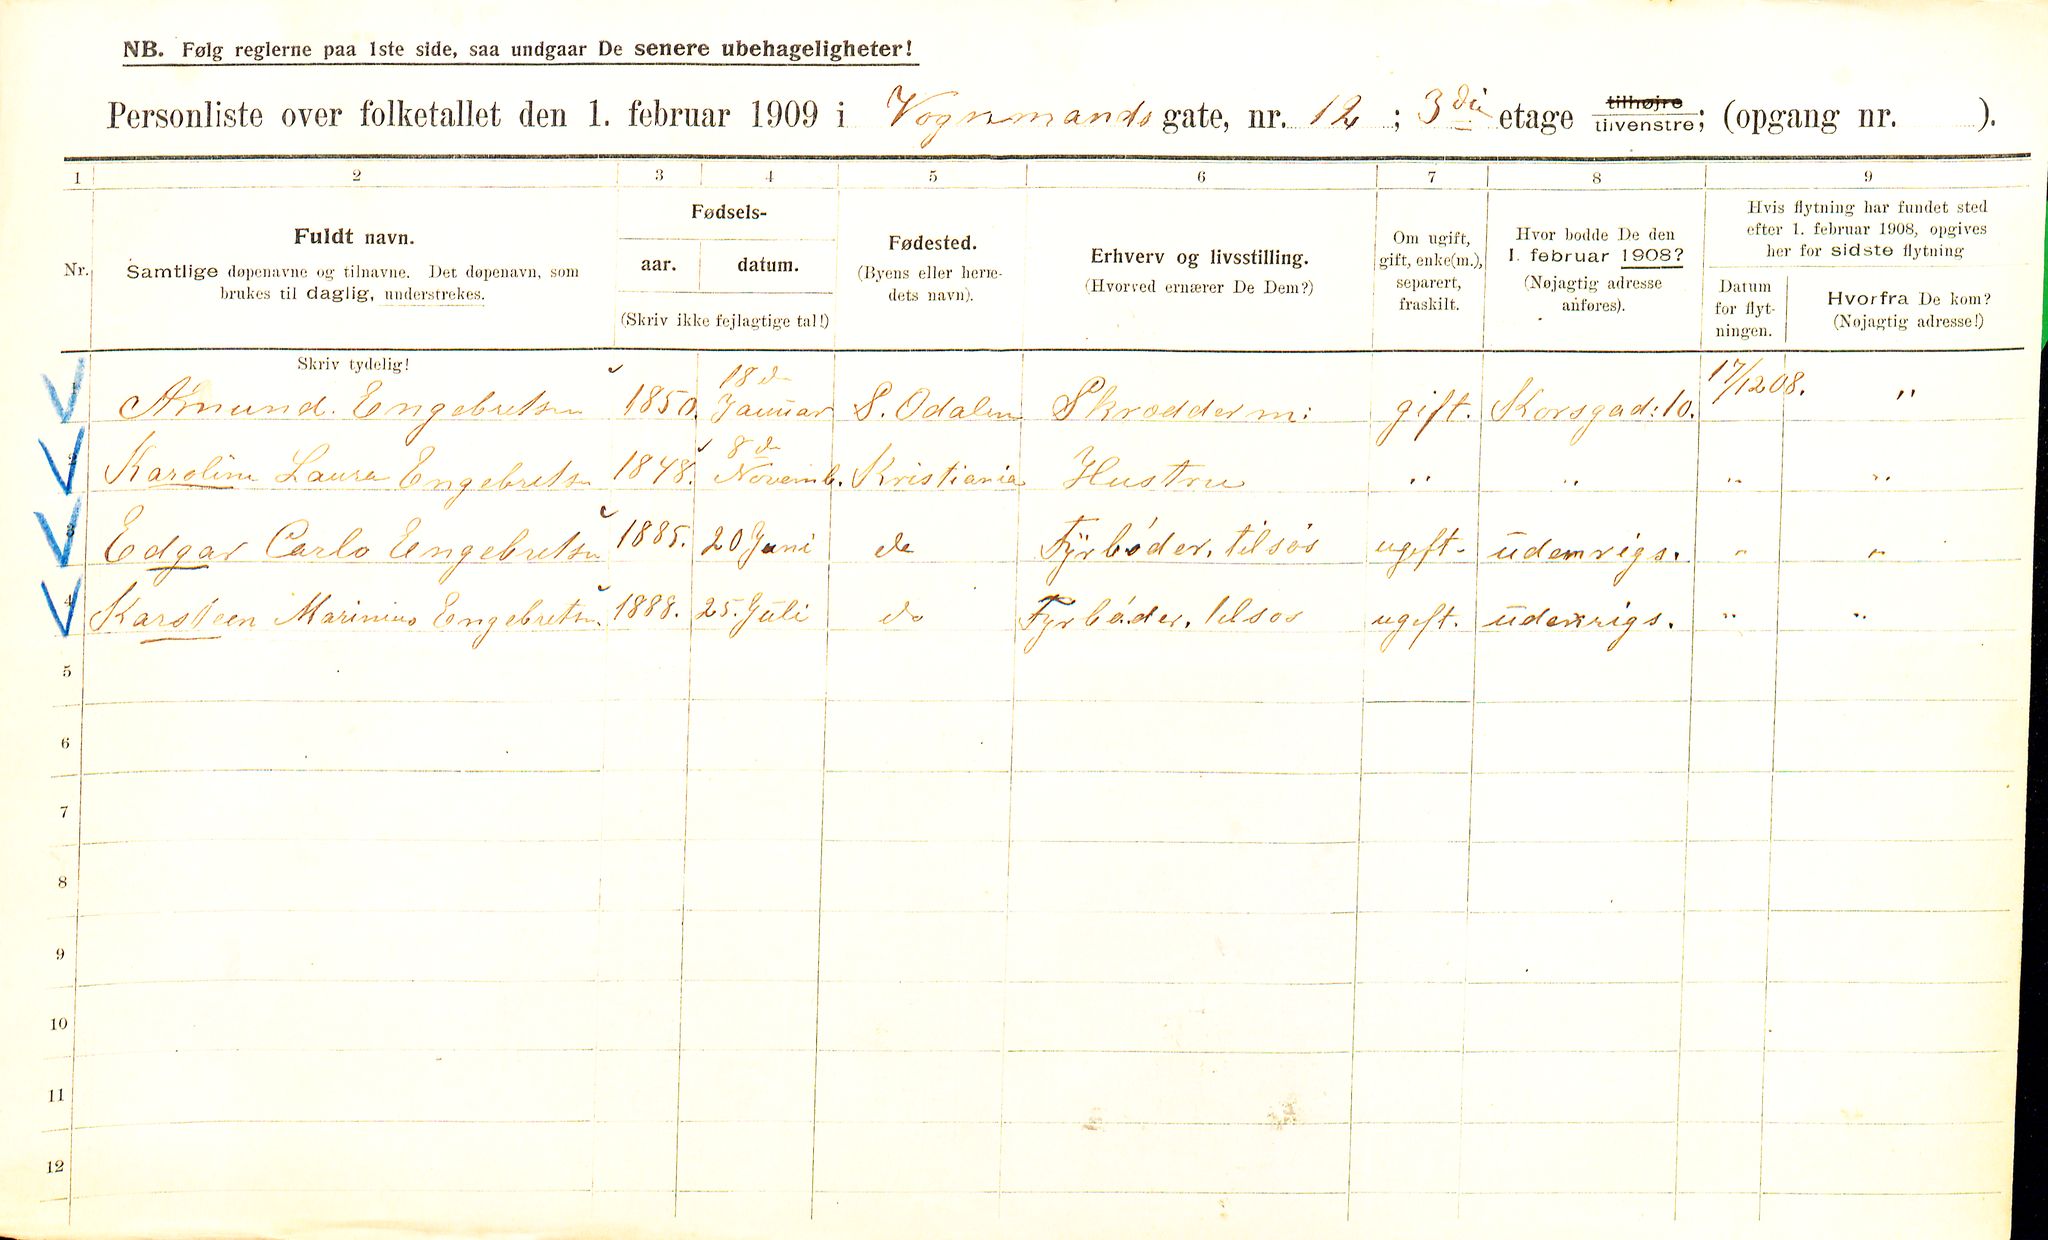 NB. Følg reglerne paa 1ste side, saa undgaar De senere ubehageligheter!
Personliste over folketallet den 1. februar 1909 i Vognmands gate, nr. 12 ; 3die etage tilhøjre tilvenstre; (opgang nr. ).
1 2 3 4 5 6 7 8 9
Nr.
Fuldt navn.
Samtlige døpenavne og tilnavne. Det døpenavn, som
brukes til daglig, understrekes.
Fødsels-
aar. datum.
(Skriv ikke fejlagtige tal!)
Fødested.
(Byens eller herre-
dets navn).
Erhverv og livsstilling.
(Hvorved ernærer De Dem?)
Om ugift,
gift, enke(m.),
separert,
fraskilt.
Hvor bodde De den
1. februar 1908?
(Nøjagtig adresse
anføres).
Hvis flytning har fundet sted
efter 1. februar 1908, opgives
her for sidste flytning
Datum
for flyt-
ningen.
Hvorfra De kom?
(Nøjagtig adresse!)
Skriv tydelig!
1 Amund Engebretsen 1850. 18de Januar S. Odalen Skrædder m: gift. Korsgad: 10. 17/12 08. "
2 Karoline Laura Engebretsen 1848. 8de Novemb. Kristiania Hustru " " " "
3 Edgar Carlo Engebretsen 1885. 20 Juni do Fyrbøder. tilsøs ugift. udenrigs. " "
4 Karsteen Marinius Engebretsen. 1888. 25. Juli do Fyrbøder. tilsøs ugift. udenrigs. " "
5
6
7
8
9
10
11
12